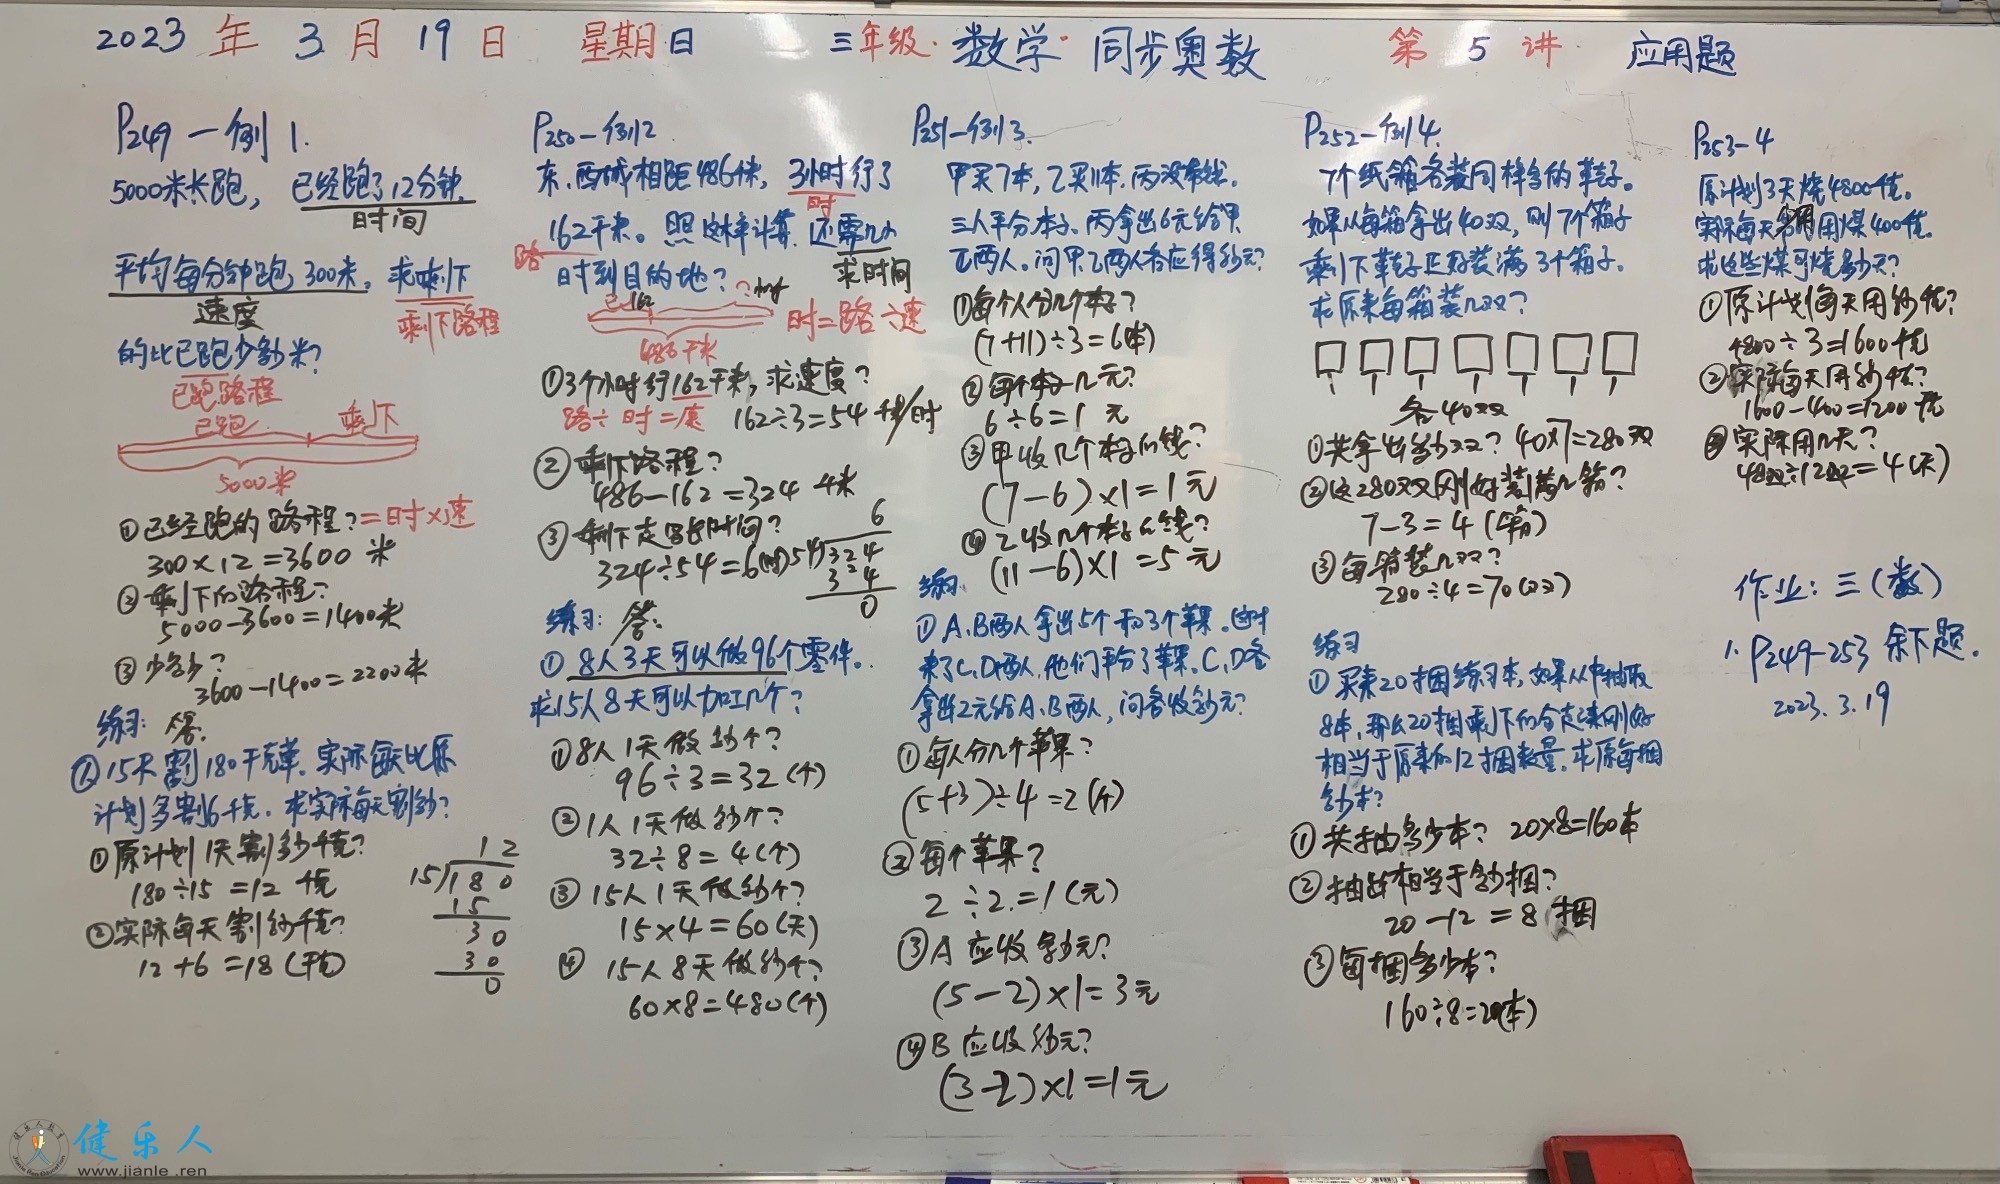 2023 年 3 月 19 日 星期日 三年级 数学 同步奥数 第 5 讲 应用题
P249-例1.
5000米长跑, 已经跑了12分钟,
时间
平均每分钟跑300米, 求剩下
速度 剩下路程
的比已跑少多少米?
已跑路程
已跑 剩下
5000米
①已经跑的路程? =时×速
300×12=3600 米
②剩下的路程?
5000-3600=1400米
③少多少?
3600-1400=2200米
练习: 答.
①15天割180千克草, 实际每天比原
计划多割6千克. 求实际每天割多少?
①原计划1天割多少千克?
180÷15=12 千克
②实际每天割多少千克?
12+6=18(千克)
12
15)180
15
30
30
0
P250-例2
东、西城相距486千米, 3小时行了
时
162千米。照这样计算, 还需几小
路 求时间
时到目的地?
已162 ?小时
486千米
时=路÷速
①3个小时行162千米, 求速度?
路÷时=速 162÷3=54 千米/时
②剩下路程?
486-162=324 千米
③剩下走完的时间?
324÷54=6(时)
6
54)324
324
0
练习: 答.
①8人3天可以做96个零件。
求15人8天可以加工几个?
①8人1天做多少个?
96÷3=32(个)
②1人1天做多少个?
32÷8=4(个)
③15人1天做多少个?
15×4=60(天)
④ 15人8天做多少个?
60×8=480(个)
P251-例3.
甲买7本, 乙买11本, 丙没带钱.
三人平分本子. 丙拿出6元给甲
乙两人。问甲乙两人各应得多少元?
①每个人分几个本子?
(7+11)÷3=6(本)
②每个本子几元?
6÷6=1 元
③甲收几个本子的钱?
(7-6)×1=1元
④乙收几个本子的钱?
(11-6)×1=5元
练习:
①A、B两人拿出5个和3个苹果。这时
来了C、D两人, 他们平分了苹果。C、D各
拿出2元给A、B两人, 问各收多少元?
①每人分几个苹果?
(5+3)÷4=2(个)
②每个苹果?
2÷2=1(元)
③A应收多少元?
(5-2)×1=3元
④B应收多少元?
(3-2)×1=1元
P252-例4.
7个纸箱各装同样多的鞋子。
如果从每箱拿出40双, 则7个箱子
剩下鞋子正好装满3个箱子.
求原来每箱装几双?
各40双
①共拿出多少双? 40×7=280双
②这280双刚好装满几箱?
7-3=4(箱)
③每箱装几双?
280÷4=70(双)
练习
①买来20捆练习本, 如果从中抽取
8本, 那么20捆剩下的合起来刚好
相当于原来的12捆数量. 求原每捆
多少本?
①共抽多少本? 20×8=160本
②抽的相当于多少捆?
20-12=8捆
③每捆多少本?
160÷8=20(本)
P253-4
原计划3天烧4800千克.
实际每天用煤400千克.
求这些煤可烧多少天?
①原计划每天用多少千克?
4800÷3=1600千克
②实际每天用多少千克?
1600-400=1200千克
③实际用几天?
4800÷1200=4(天)
作业: 三(数)
1. P249-253 余下题.
2023.3.19
健乐人
www.jianle.ren